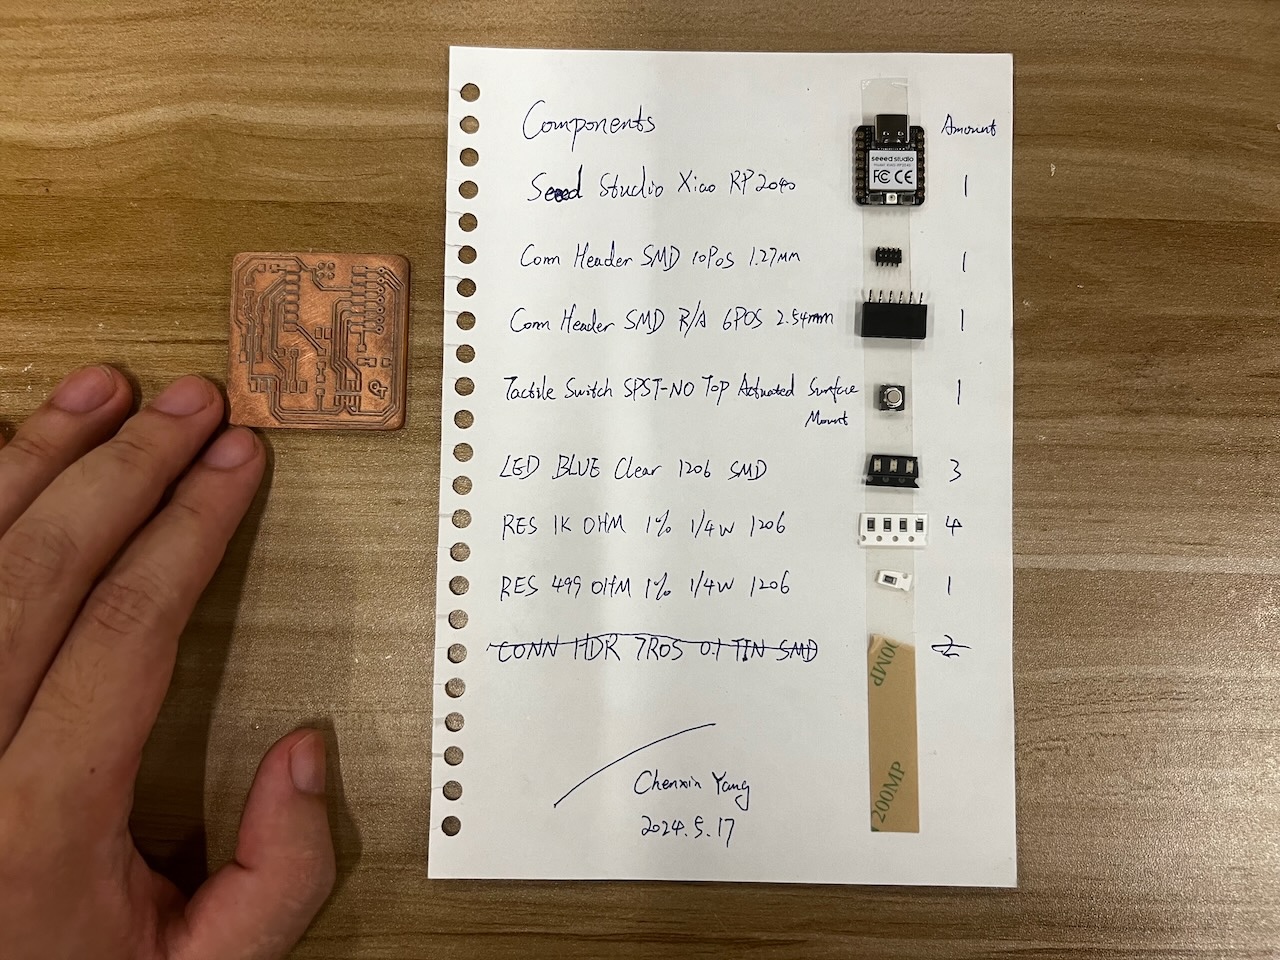 Components
Amount
Seeed Studio Xiao RP2040
seeed studio
FC CE
1
Conn Header SMD 10Pos 1.27mm
1
Conn Header SMD R/A 6POS 2.54mm
1
Tactile Switch SPST-NO Top Actuated Surface
Mount
1
LED BLUE Clear 1206 SMD
3
RES 1K OHM 1% 1/4W 1206
4
RES 499 OHM 1% 1/4W 1206
1
CONN HDR 7POS 0.1 TIN SMD
2
200MP
Chenxin Yang
2024.5.17